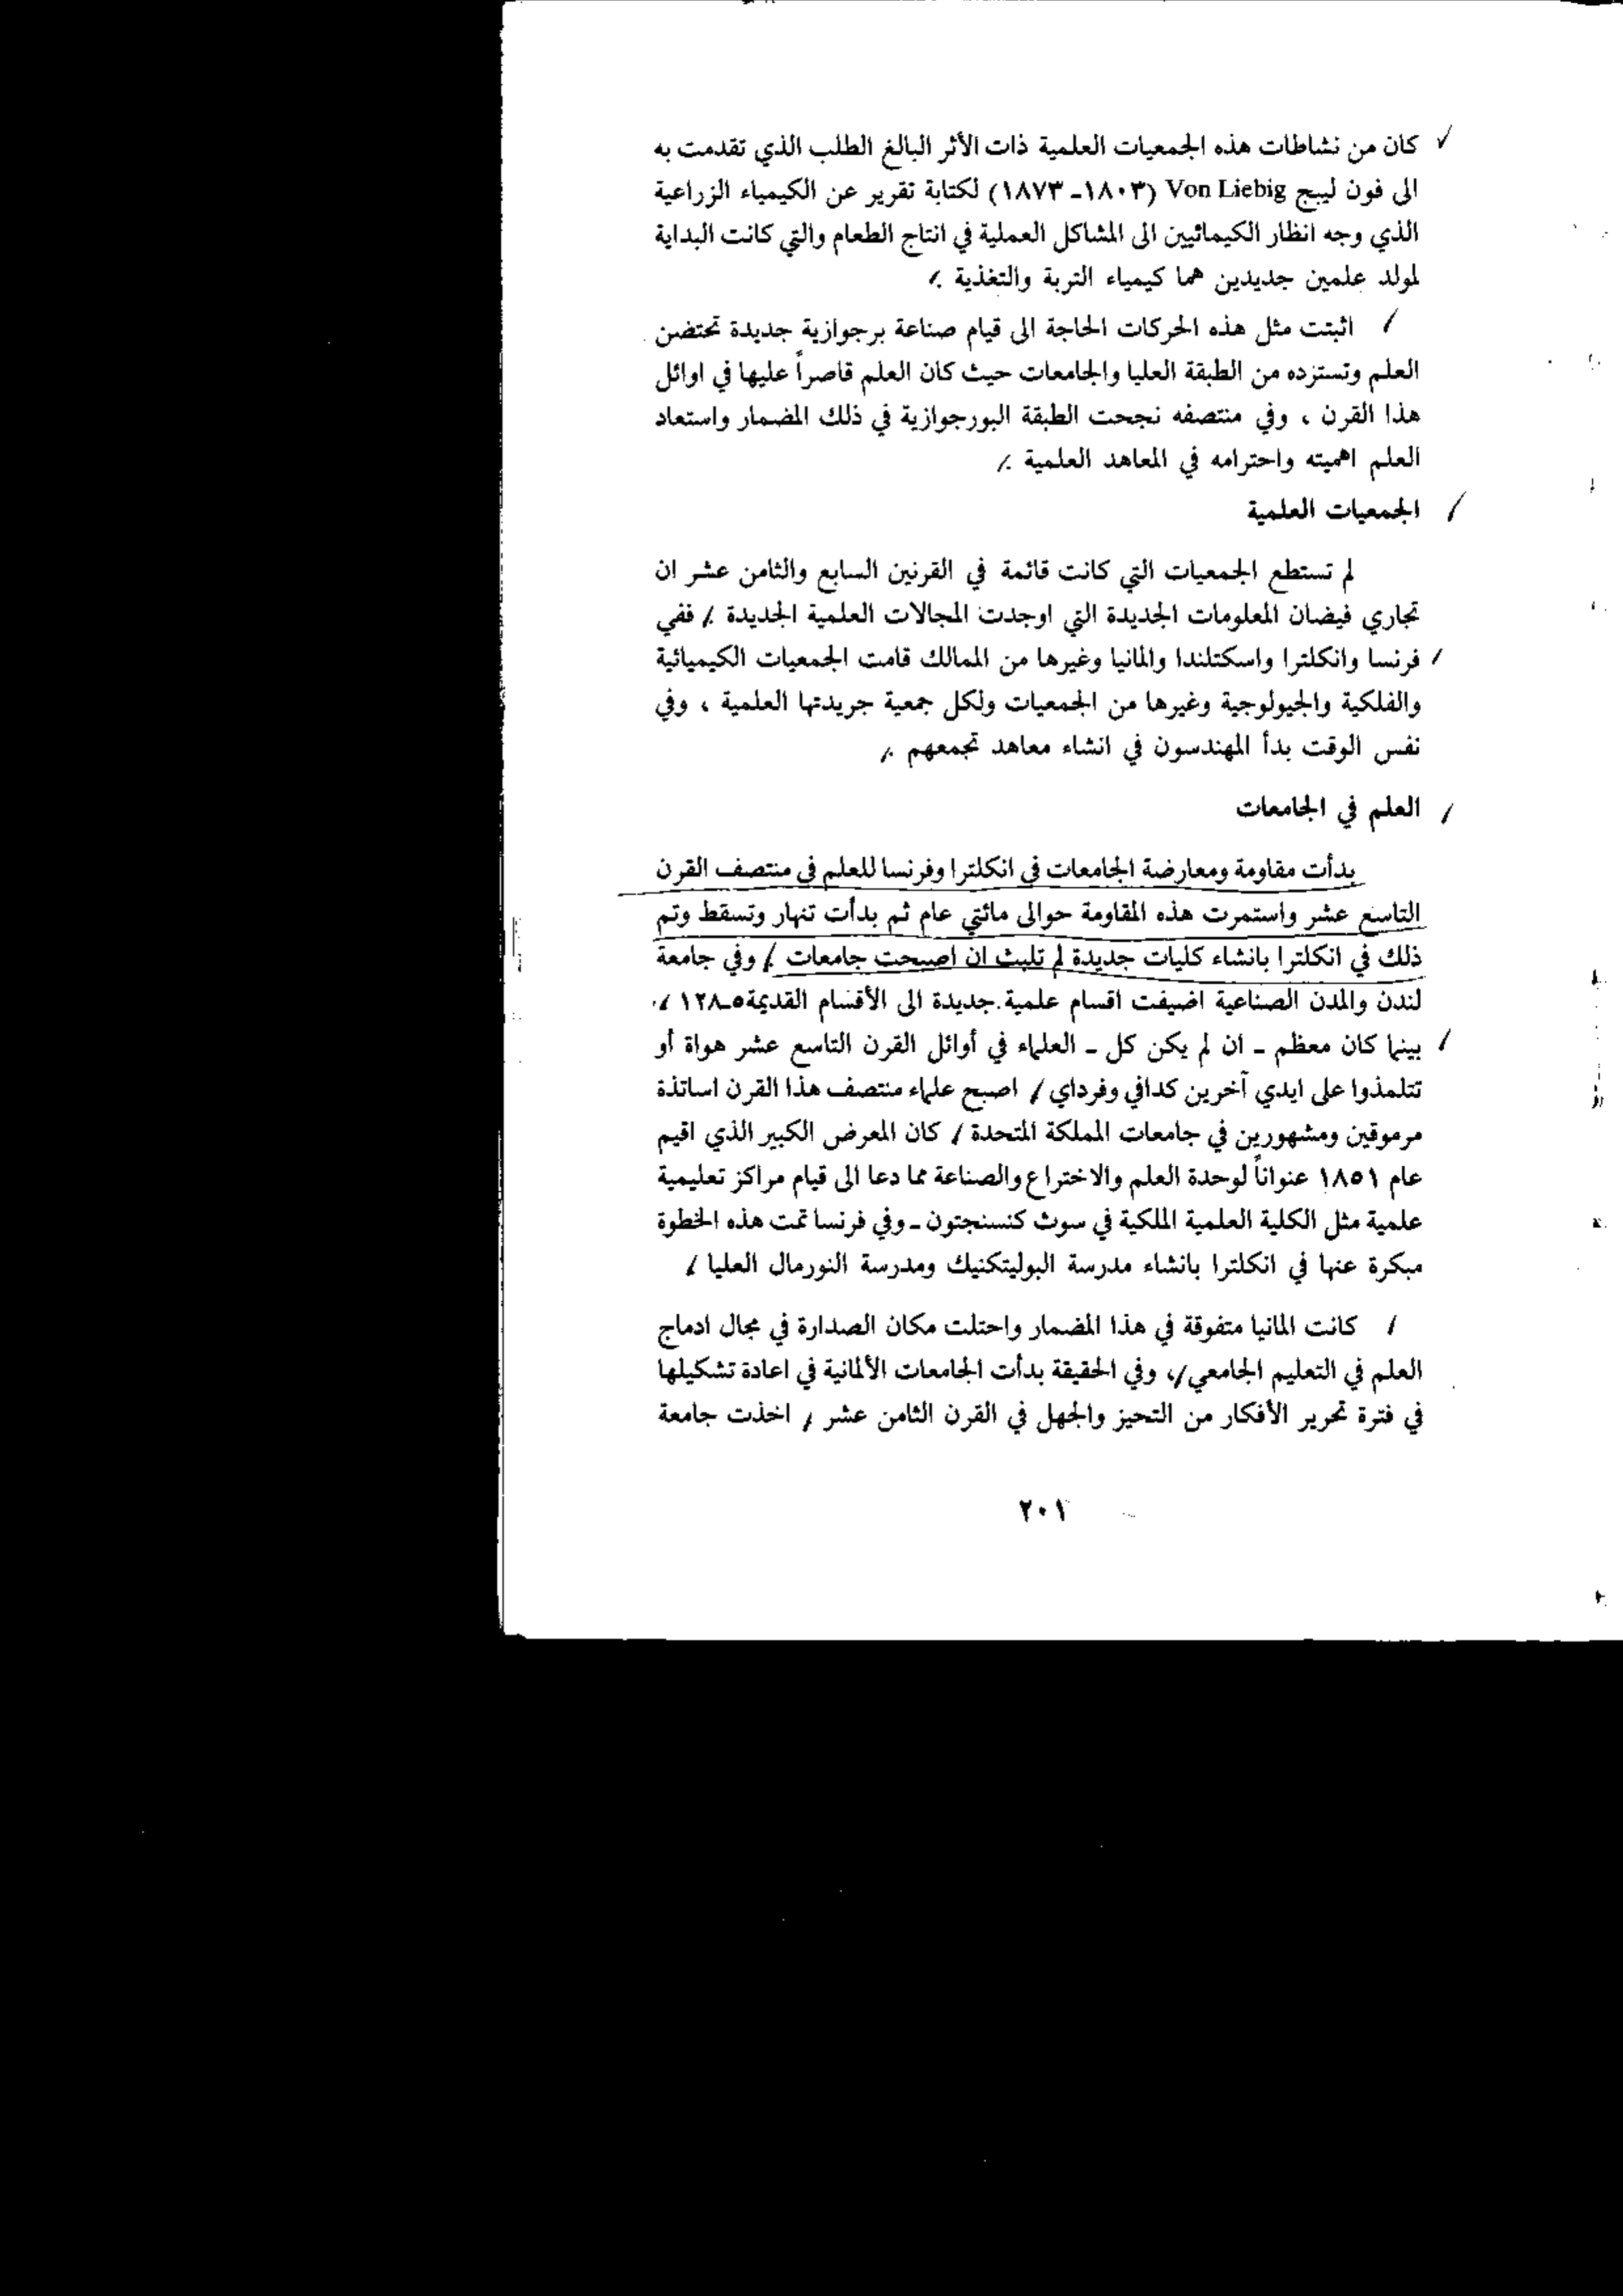 كان من نشاطات هذه الجمعيات العلمية ذات الأثر البالغ الطلب الذي تقدمت به
الى فون ليبج Von Liebig (١٨٠٣ـ ١٨٧٣) لكتابة تقرير عن الكيمياء الزراعية
الذي وجه انظار الكيمائيين الى المشاكل العملية في انتاج الطعام والتي كانت البداية
لمولد علمين جديدين هما كيمياء التربة والتغذية .
اثبتت مثل هذه الحركات الحاجة الى قيام صناعة برجوازية جديدة تحتضن
العلم وتستزده من الطبقة العليا والجامعات حيث كان العلم قاصراً عليها في اوائل
هذا القرن ، وفي منتصفه نجحت الطبقة البورجوازية في ذلك المضمار واستعاد
العلم اهميته واحترامه في المعاهد العلمية .
الجمعيات العلمية
لم تستطع الجمعيات التي كانت قائمة في القرنين السابع والثامن عشر ان
تجاري فيضان المعلومات الجديدة التي اوجدت المجالات العلمية الجديدة . ففي
فرنسا وانكلترا واسكتلندا والمانيا وغيرها من الممالك قامت الجمعيات الكيميائية
والفلكية والجيولوجية وغيرها من الجمعيات ولكل جمعية جريدتها العلمية ، وفي
نفس الوقت بدأ المهندسون في انشاء معاهد تجمعهم .
العلم في الجامعات
بدأت مقاومة ومعارضة الجامعات في انكلترا وفرنسا للعلم في منتصف القرن
التاسع عشر واستمرت هذه المقاومة حوالى مائتي عام ثم بدأت تنهار وتسقط وتم
ذلك في انكلترا بانشاء كليات جديدة لم تلبث ان اصبحت جامعات . وفي جامعة
لندن والمدن الصناعية اضيفت اقسام علمية جديدة الى الأقسام القديمة٥ـ١٢٨ .
بينما كان معظم ـ ان لم يكن كل ـ العلماء في أوائل القرن التاسع عشر هواة أو
تتلمذوا على ايدي آخرين كدافي وفرداي . اصبح علماء منتصف هذا القرن اساتذة
مرموقين ومشهورين في جامعات المملكة المتحدة . كان المعرض الكبير الذي اقيم
عام ١٨٥١ عنواناً لوحدة العلم والاختراع والصناعة مما دعا الى قيام مراكز تعليمية
علمية مثل الكلية العلمية الملكية في سوث كنسنجتون ـ وفي فرنسا تمت هذه الخطوة
مبكرة عنها في انكلترا بانشاء مدرسة البوليتكنيك ومدرسة النورمال العليا .
كانت المانيا متفوقة في هذا المضمار واحتلت مكان الصدارة في مجال ادماج
العلم في التعليم الجامعي ، وفي الحقيقة بدأت الجامعات الألمانية في اعادة تشكيلها
في فترة تحرير الأفكار من التحيز والجهل في القرن الثامن عشر . اخذت جامعة
٢٠١